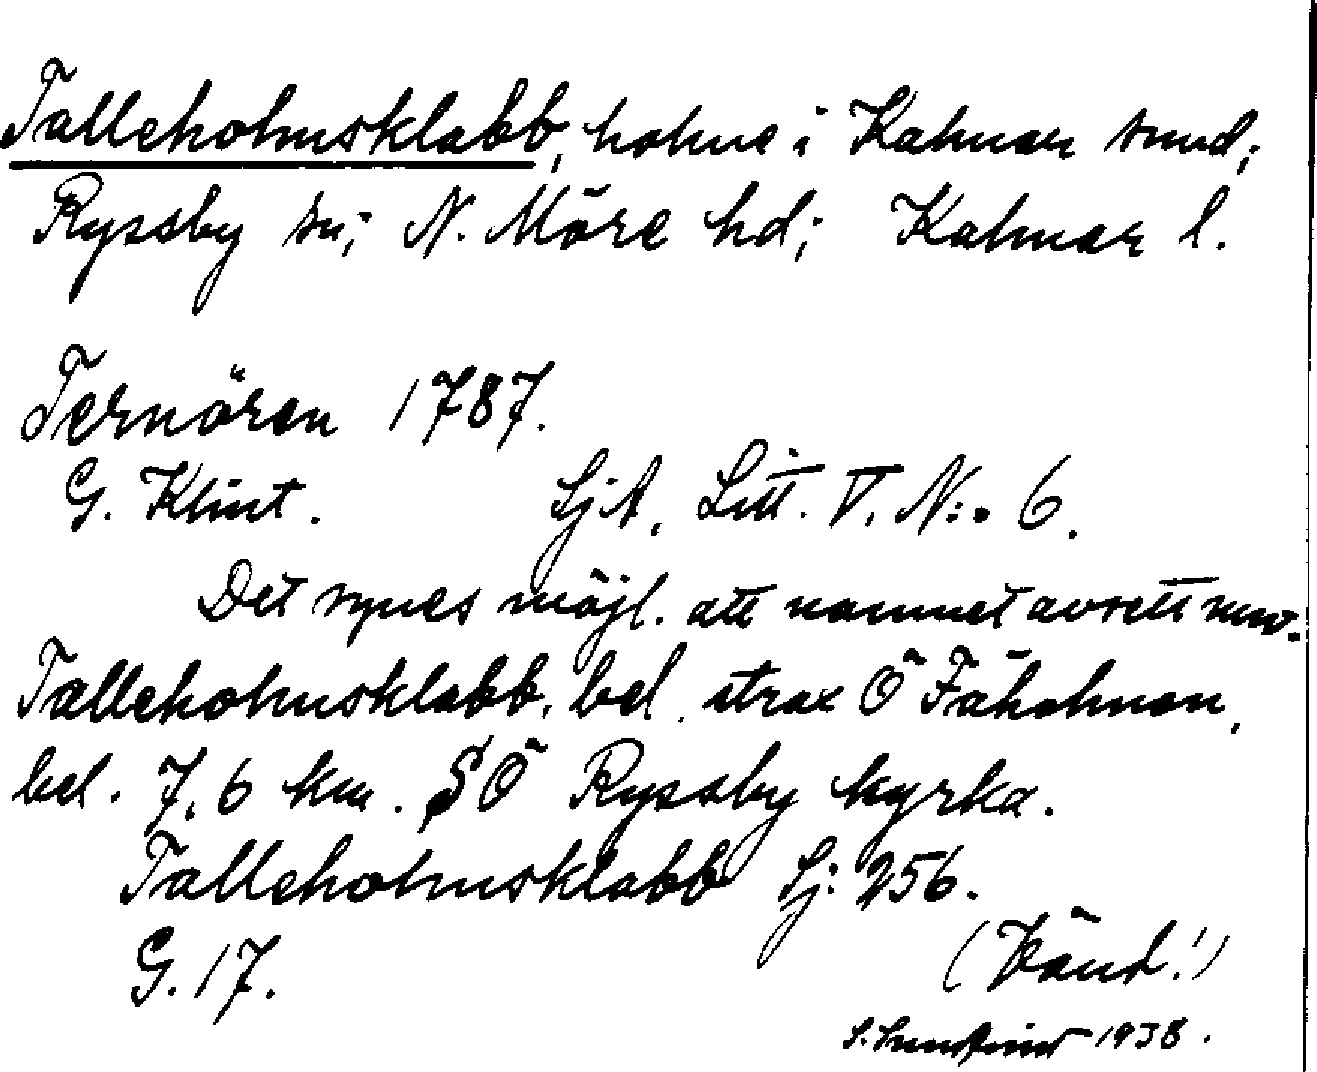 Talleholmsklabb, holme i Kalmar sund;
Ryssby sn; N. Möre hd; Kalmar l.
Ternören 1787.
G. Klint. SjA, Litt. V. N:o 6.
Det synes möjl. att namnet avsett nuv.
Talleholmsklabb, bel. strax Ö Fåholmen,
bel. 7,6 km. SÖ Ryssby kyrka.
Talleholmsklabb Sj: 256.
G. 17.
(Vänd!)
1938.